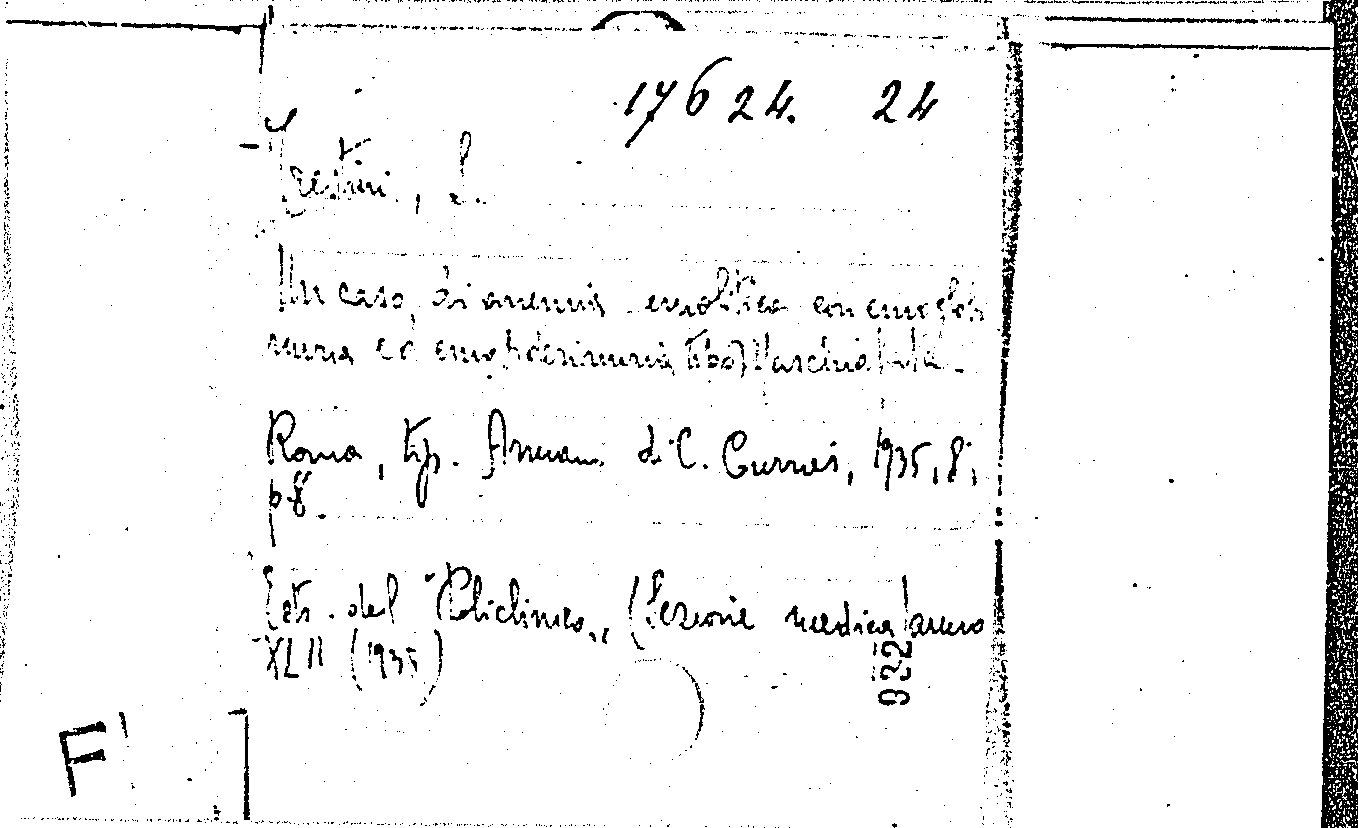 17624. 24
L.
Un caso di anemia emolitica con emoglobi
nuria ed emosiderinuria tipo Marchiafava.
Roma, tip. Armani di C. Currier, 1935, 8,
p. 8.
Estr. del "Policlinico„ (Sezione medica) anno
XLII (1935)
932
F